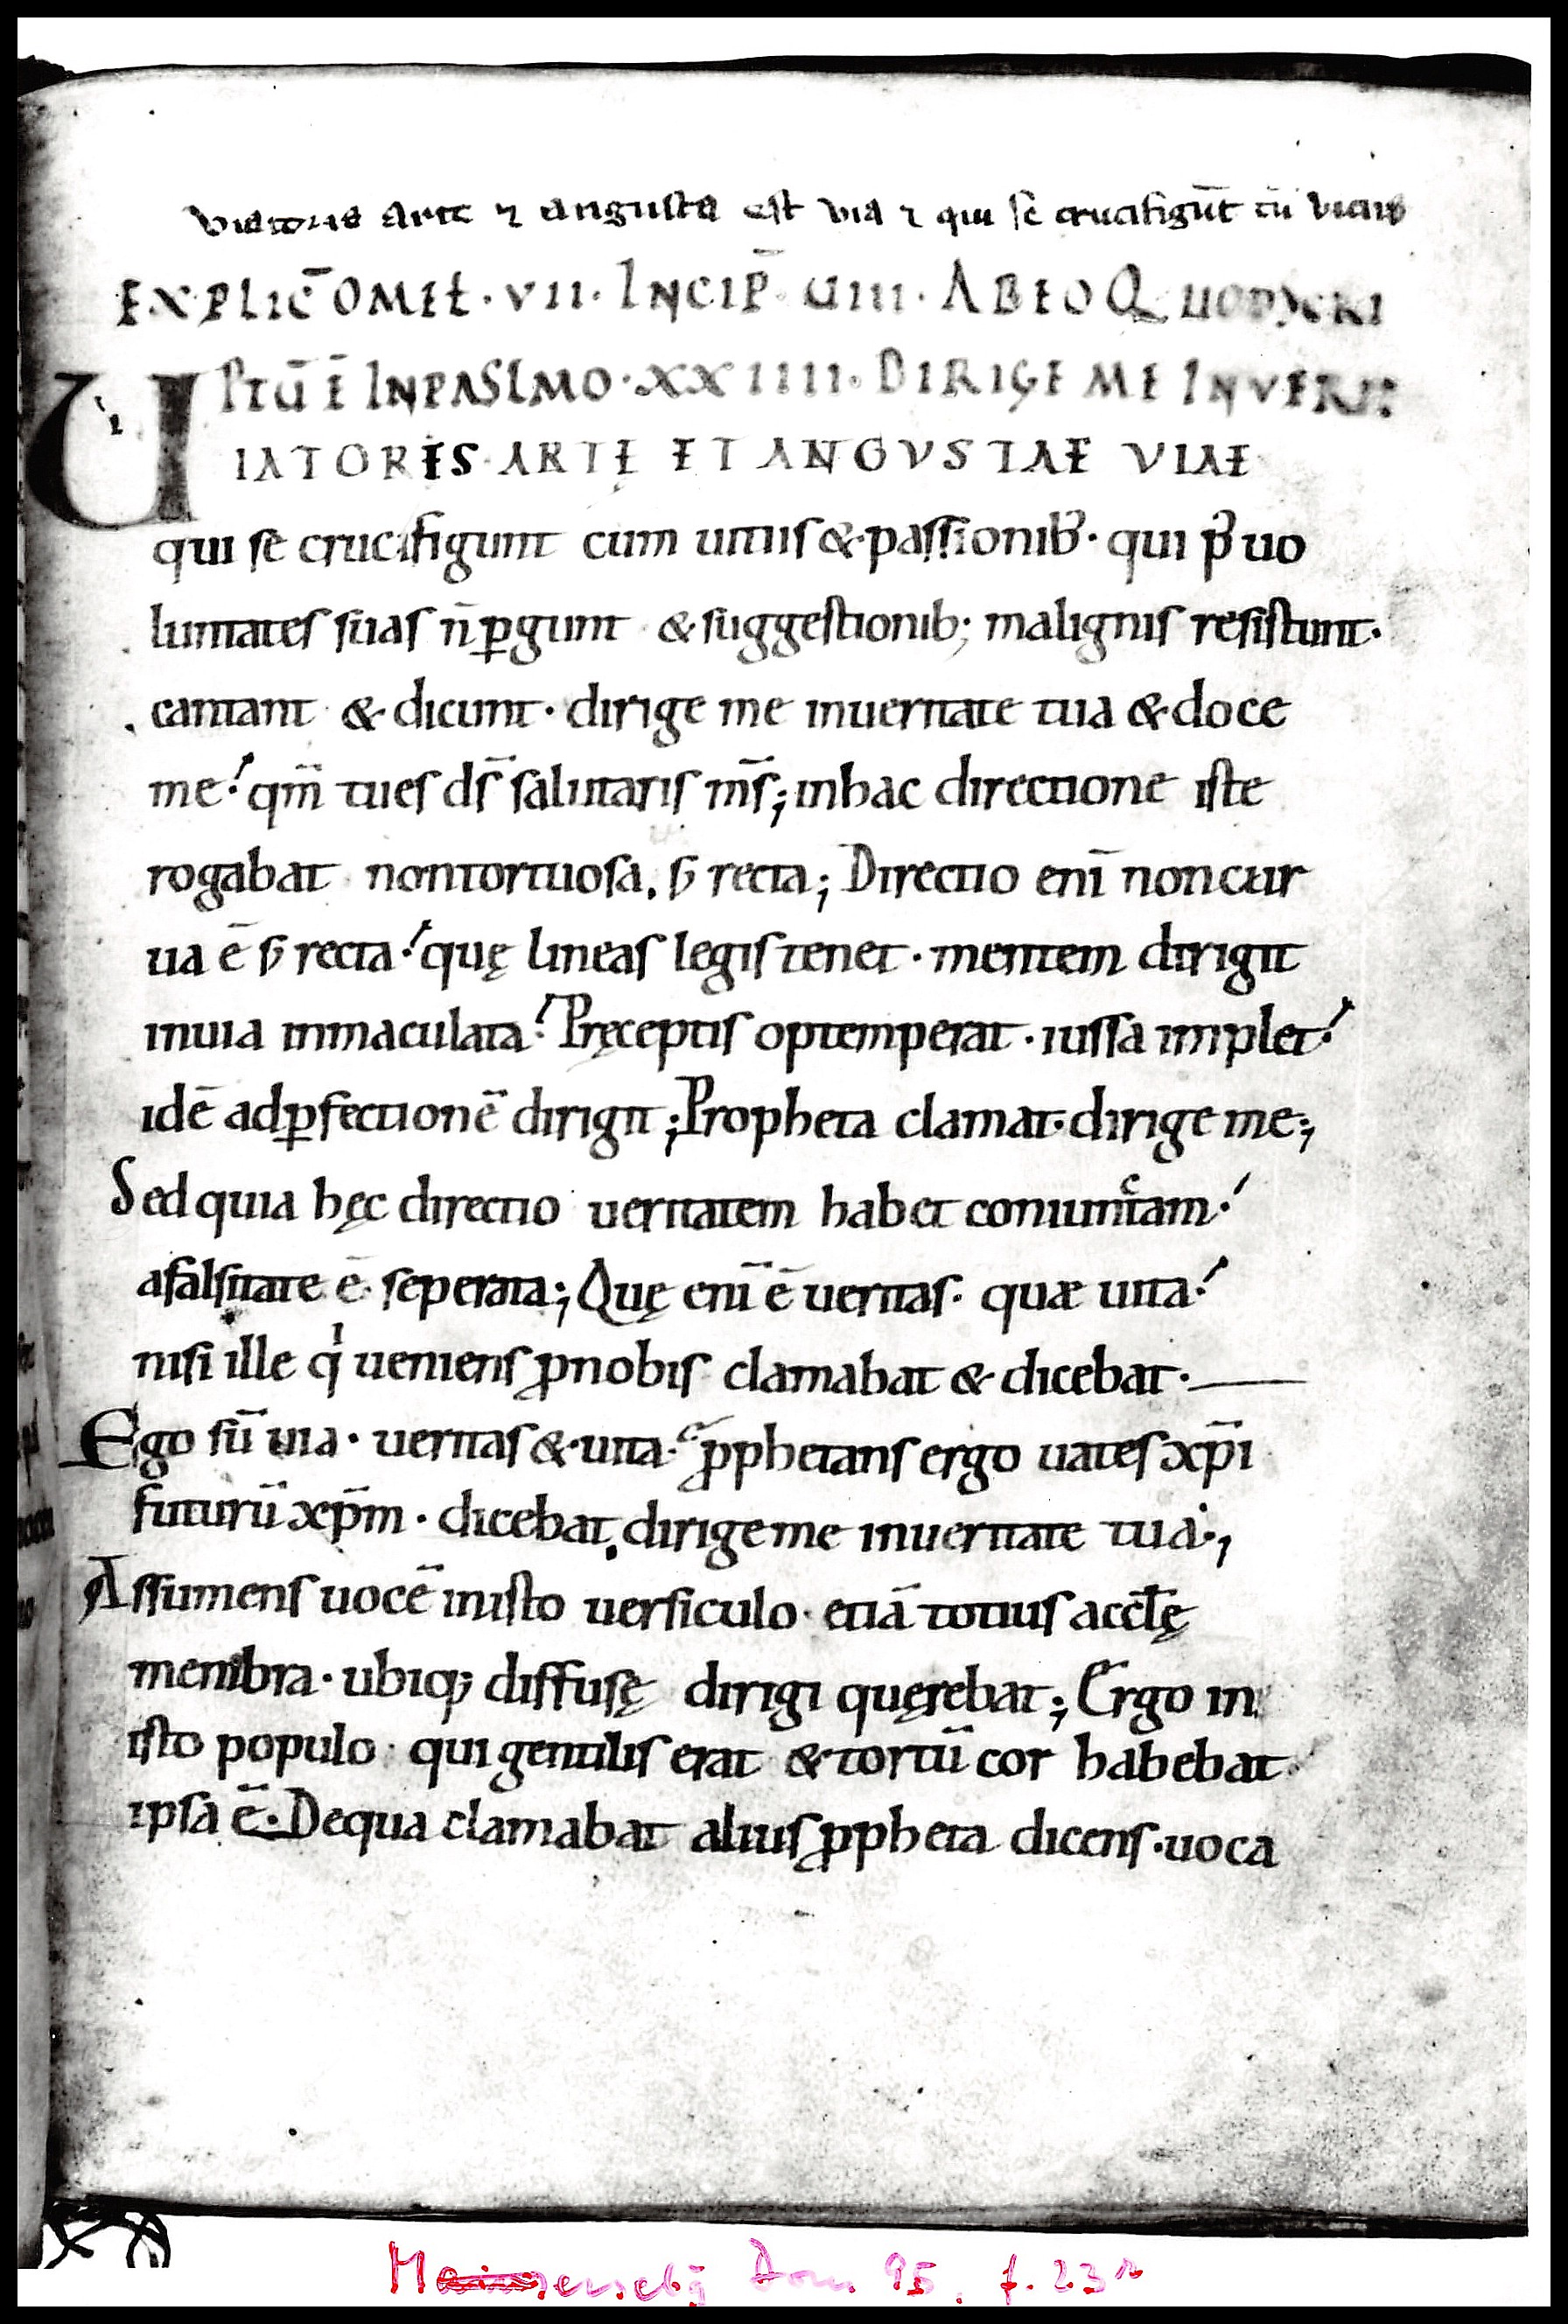 viatoris arte ⁊ angusta est via ⁊ qui se crucifigūt cū viciis
EXPLIC̄ OMEŁ · VII · INCIP̄ UIII · AB EO QUOD SCRI
PTŪ Ē IN PASLMO · XXIIII · DIRIGE ME IN VERI:
UIATORES ARTE ET ANGVSTAE VIAE
qui se crucifigunt cum uitiis &passionib᷒· qui p᷒ uo
luntates suas n̄ ꝑgunt & suggestionib; malignis resistunt·
cantant & dicunt· dirige me inueritate tua & doce
me! qm̄ tues ds̄ salutaris ms̄; inhac directione iste
rogabat nontortuosa. s; recta; Directio eni̅ noncur
ua ē s; recta! quę lineas legis tenet· mentem dirigit
inuia inmaculata! Pręceptis optemperat· iussa implet!
idē adꝑfectionē dirigit; Propheta clamat· dirige me;
Sed quia hęc directio ueritatem habet coniunctam!
afalsitate ē· seperata; Quę eni̅ ē ueritas· quæ uita!
nisi ille qi ueniens ꝓnobis clamabat & dicebat·
Ego sū uia· ueritas &·uita· ꝓphetans ergo uates xp̄i
futurū xp̄m· dicebat. dirigeme inueritate tua;
Assumens uocē inisto uersiculo· etiā totius aeccl̄ę
menbra· ubiq; diffusę dirigi quęrebat; Ergo in
isto populo· qui gentilis erat & tortū cor habebat
ipsa ē· Dequa clamabat alius ꝓpheta dicens· uoca
Dom 95, f. 23r